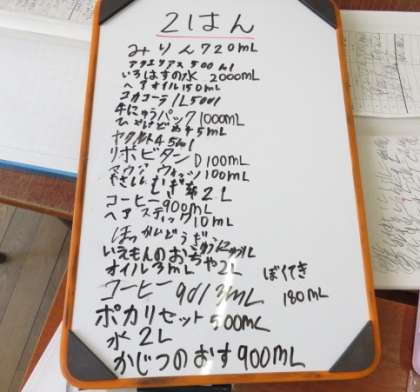 21はん
みりん720mL
アクエリアス500ml
いろはすの水 2000mL
ヘアオイル150mL
コカコーラ1L500l
牛にゅうパック1000mL
ひやけどめ45mL
ヤクルト45ml
リポビタンD100mL
マウスウォッシュ100mL
やさしいむぎ茶2L
コーヒー900mL
ヘアスティック10mL
ほっかいどう
いえもんのおちゃ2L
オイル3mL
ぼくてき
コーヒー9dl3mL
180mL
ポカリセット500mL
水2L
かじつのおす900mL